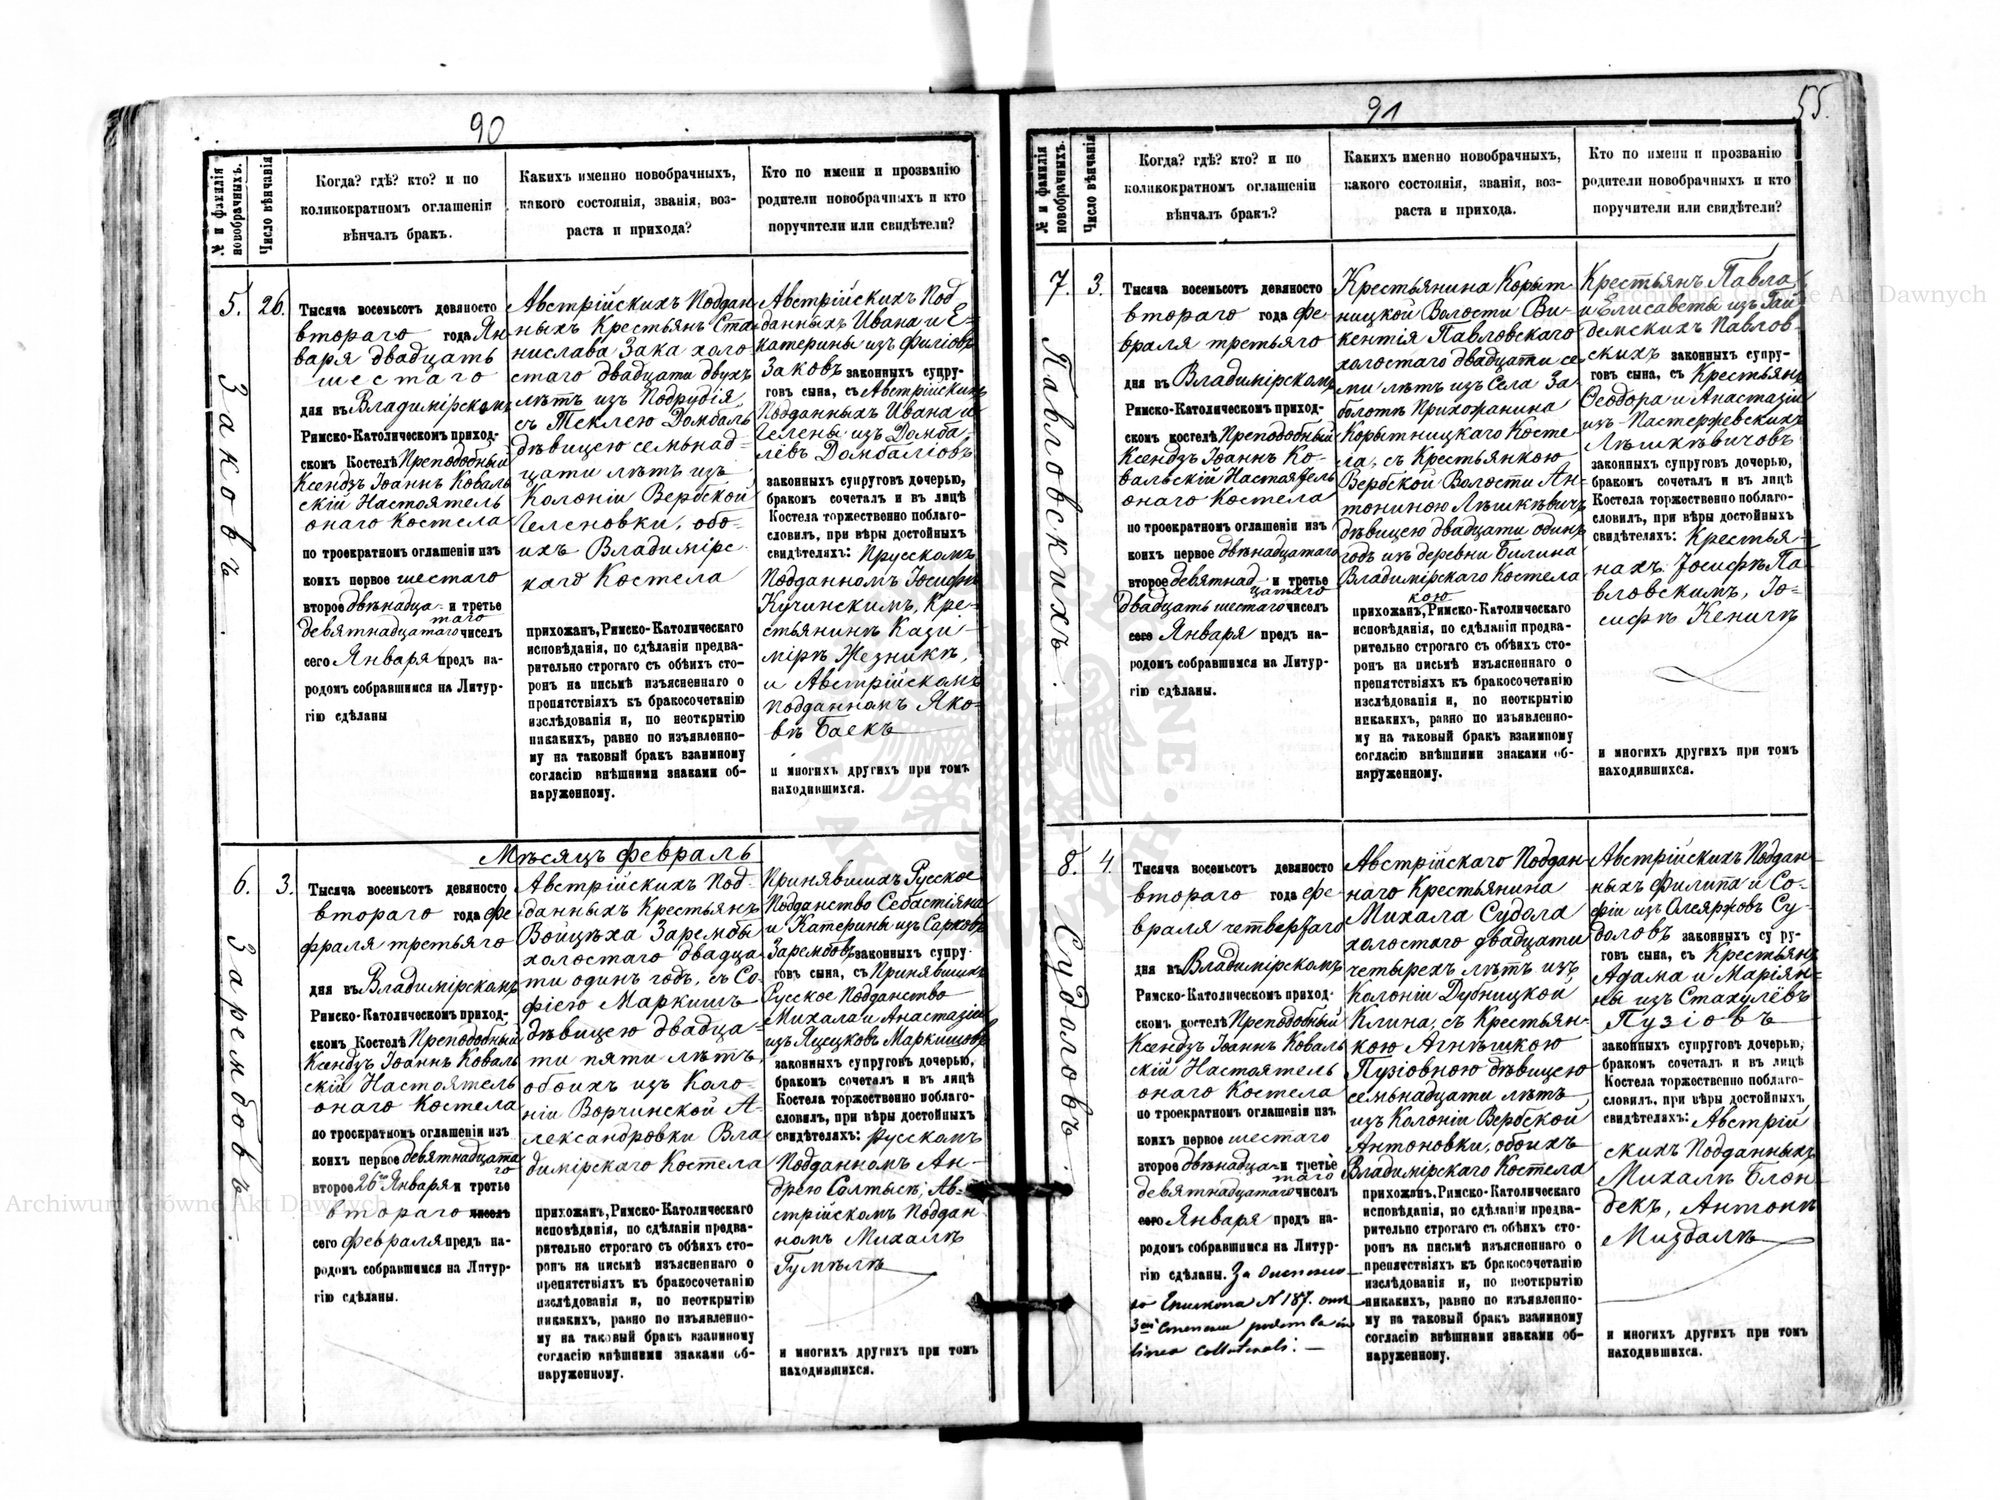 90
№ и фамилія новобрачныхъ.
Число вѣнчанія
Когда? гдѣ? кто? и по
коликократномъ оглашеніи
вѣнчалъ бракъ.
Какихъ именно новобрачныхъ,
какого состоянія, званія, воз-
раста и прихода?
Кто по имени и прозванію
родители новобрачныхъ и кто
поручители или свидѣтели?
5.
Заковъ.
26.
Тысяча восемьсотъ девяносто
втораго года Ян
варя двадцать
шестаго
дня въ Владимірскомъ
Римско-Католическомъ приход-
скомъ Костелѣ Преподобный
Ксендзъ Іоаннъ Коваль
скій Настоятель
онаго Костела
по троекратномъ оглашеніи изъ
коихъ первое шестаго
второе двѣнадца- и третье
таго
девятнадцатаго чиселъ
сего Января предъ на-
родомъ собравшимся на Литур-
гію сдѣланы
Австрійскихъ Поддан
ныхъ Крестьянъ Ста
нислава Зака холо
стаго двадцати двухъ
лѣтъ изъ Подрудія,
съ Теклею Домбаль
дѣвицею семьнад-
цати лѣтъ изъ
Колоніи Вербской
Селеновки, обо-
ихъ Владимірс-
каго Костела
прихожанъ, Римско-Католическаго
исповѣданія, по сдѣланіи предва-
рительно строгаго съ обѣихъ сто-
ронъ на письмѣ изъясненнаго о
препятствіяхъ къ бракосочетанію
изслѣдованія и, по неоткрытію
никакихъ, равно по изъявленно-
му на таковый бракъ взаимному
согласію внѣшними знаками об-
наруженному.
Австрійскихъ Под
данныхъ Ивана и Е-
катерины изъ Филіовъ
Заковъ законныхъ супру-
говъ сына, съ Австрійскихъ
Подданныхъ Ивана и
Гелены изъ Домба-
лёвъ Домбаліовъ
законныхъ супруговъ дочерью,
бракомъ сочеталъ и въ лицѣ
Костела торжественно поблаго-
словилъ, при вѣры достойныхъ
свидѣтеляхъ: Прусскомъ
Подданномъ Іосифѣ
Кучинскимъ, Кре-
стьянинѣ Кази-
мірѣ Жезникѣ,
и Австрійскомъ
подданномъ Яко-
вѣ Баекъ
и многихъ другихъ при томъ
находившихся.
Мѣсяцъ февраль
6.
Зарембовъ.
3.
Тысяча восемьсотъ девяносто
втораго года Фе
враля третьяго
дня въ Владимірскомъ
Римско-Католическомъ приход-
скомъ Костелѣ Преподобный
Ксендзъ Іоаннъ Коваль
скій Настоятель
онаго Костела
по троекратномъ оглашеніи изъ
коихъ первое девятнадцата
го
второе 26го Января и третье
втораго чиселъ
сего февраля предъ на-
родомъ собравшимся на Литур-
гію сдѣланы.
Австрійскихъ Под-
данныхъ Крестьянъ
Войцѣха Зарембы
холостаго двадца-
ти одинъ годъ, съ Со-
фіею Маркишъ
дѣвицею двадца-
ти пяти лѣтъ
обоихъ изъ Коло-
ніи Ворчинской А-
лександровки Вла
димірскаго Костела
прихожанъ, Римско-Католическаго
исповѣданія, по сдѣланіи предва-
рительно строгаго съ обѣихъ сто-
ронъ на письмѣ изъясненнаго о
препятствіяхъ къ бракосочетанію
изслѣдованія и, по неоткрытію
никакихъ, равно по изъявленно-
му на таковый бракъ взаимному
согласію внѣшними знаками об-
наруженному.
Принявшихъ Русское
Подданство Себастіяна
и Катерины изъ Сарковъ
Зарембовъ законныхъ супру-
говъ сына, съ Принявшихъ
Русское Подданство
Михала и Анастазіи
изъ Яцецковъ Маркишовъ
законныхъ супруговъ дочерью,
бракомъ сочеталъ и въ лицѣ
Костела торжественно поблаго-
словилъ, при вѣры достойныхъ
свидѣтеляхъ: Русскомъ
Подданномъ Ан-
дрею Солтысѣ, Ав-
стрійскомъ Поддан-
номъ Михалѣ
Гумѣлѣ
и многихъ другихъ при томъ
находившихся.
91
55.
№ и фамилія новобрачныхъ.
Число вѣнчанія
Когда? гдѣ? кто? и по
коликократномъ оглашеніи
вѣнчалъ бракъ?
Какихъ именно новобрачныхъ,
какого состоянія, званія, воз-
раста и прихода.
Кто по имени и прозванію
родители новобрачныхъ и кто
поручители или свидѣтели?
7.
Павловскихъ.
3.
Тысяча восемьсотъ девяносто
втораго года Фе-
враля третьяго
дня въ Владимірскомъ
Римско-Католическомъ приход-
скомъ костелѣ Преподобный
Ксендзъ Іоаннъ Ко-
вальскій Настоятель
онаго Костела
по троекратномъ оглашеніи изъ
коихъ первое двѣнадцатаго
второе девятнад- и третье
цатаго
двадцать шестаго чиселъ
сего Января предъ на-
родомъ собравшимся на Литур-
гію сдѣланы.
Крестьянина Корыт-
ницкой Волости Ви-
кентія Павловскаго
холостаго двадцати се
ми лѣтъ изъ Села За
болотъ Прихожанина
Корытницкаго Косте-
ла, съ Крестьянкою
Вербской Волости Ан-
тониною Лѣшкѣвичъ
дѣвицею двадцати одинъ
годъ изъ деревни Билина
Владимірскаго Костела
кою
прихожанъ, Римско-Католическаго
исповѣданія, по сдѣланіи предва-
рительно строгаго съ обѣихъ сто-
ронъ на письмѣ изъясненнаго о
препятствіяхъ къ бракосочетанію
изслѣдованія и, по неоткрытію
никакихъ, равно по изъявленно-
му на таковый бракъ взаимному
согласію внѣшними знаками об-
наруженному.
Крестьянъ Павла
и Елисаветы изъ Гай
демскихъ Павлов-
скихъ законныхъ супру-
говъ сына, съ Крестьянъ
Ѳеодора и Анастазіи
изъ Пастержевскихъ
Лѣшкѣвичовъ
законныхъ супруговъ дочерью,
бракомъ сочеталъ и въ лицѣ
Костела торжественно поблаго-
словилъ, при вѣры достойныхъ
свидѣтеляхъ: Крестья-
нахъ Іосифѣ Па-
вловскимъ, Іо-
сифѣ Кенигѣ
и многихъ другихъ при томъ
находившихся.
8.
Судоловъ.
4.
Тысяча восемьсотъ девяносто
втораго года Фе-
враля четвертаго
дня въ Владимірскомъ
Римско-Католическомъ приход-
скомъ костелѣ Преподобный
Ксендзъ Іоаннъ Коваль
скій Настоятель
онаго Костела
по троекратномъ оглашеніи изъ
коихъ первое шестаго
второе двѣнадца- и третье
таго
девятнадцатаго чиселъ
сего Января предъ на-
родомъ собравшимся на Литур-
гію сдѣланы. За
Епископа N 187.
linea collaterali. —
Австрійскаго Поддан-
наго Крестьянина
Михала Судола
холостаго двадцати
четырехъ лѣтъ изъ
Колоніи Дубницкой
Клина, съ Крестьян-
кою Агнѣшкою
Пузіовною дѣвицею
семьнадцати лѣтъ
изъ Колоніи Вербской
Антоновки, обоихъ
Владимірскаго Костела
прихожанъ, Римско-Католическаго
исповѣданія, по сдѣланіи предва-
рительно строгаго съ обѣихъ сто-
ронъ на письмѣ изъясненнаго о
препятствіяхъ къ бракосочетанію
изслѣдованія и, по неоткрытію
никакихъ, равно по изъявленно-
му на таковый бракъ взаимному
согласію внѣшними знаками об-
наруженному.
Австрійскихъ Поддан-
ныхъ Филипа и Со-
фіи изъ Олеяржовъ Су-
доловъ законныхъ супру-
говъ сына, съ Крестьянъ
Адама и Маріян-
ны изъ Стахулёвъ
Пузіовъ
законныхъ супруговъ дочерью,
бракомъ сочеталъ и въ лицѣ
Костела торжественно поблаго-
словилъ, при вѣры достойныхъ
свидѣтеляхъ: Австрій
скихъ Подданныхъ
Михалѣ Блон-
декъ, Антонѣ
Миздалѣ
и многихъ другихъ при томъ
находившихся.
Archiwum Główne Akt Dawnych
Archiwum Główne Akt Dawnych